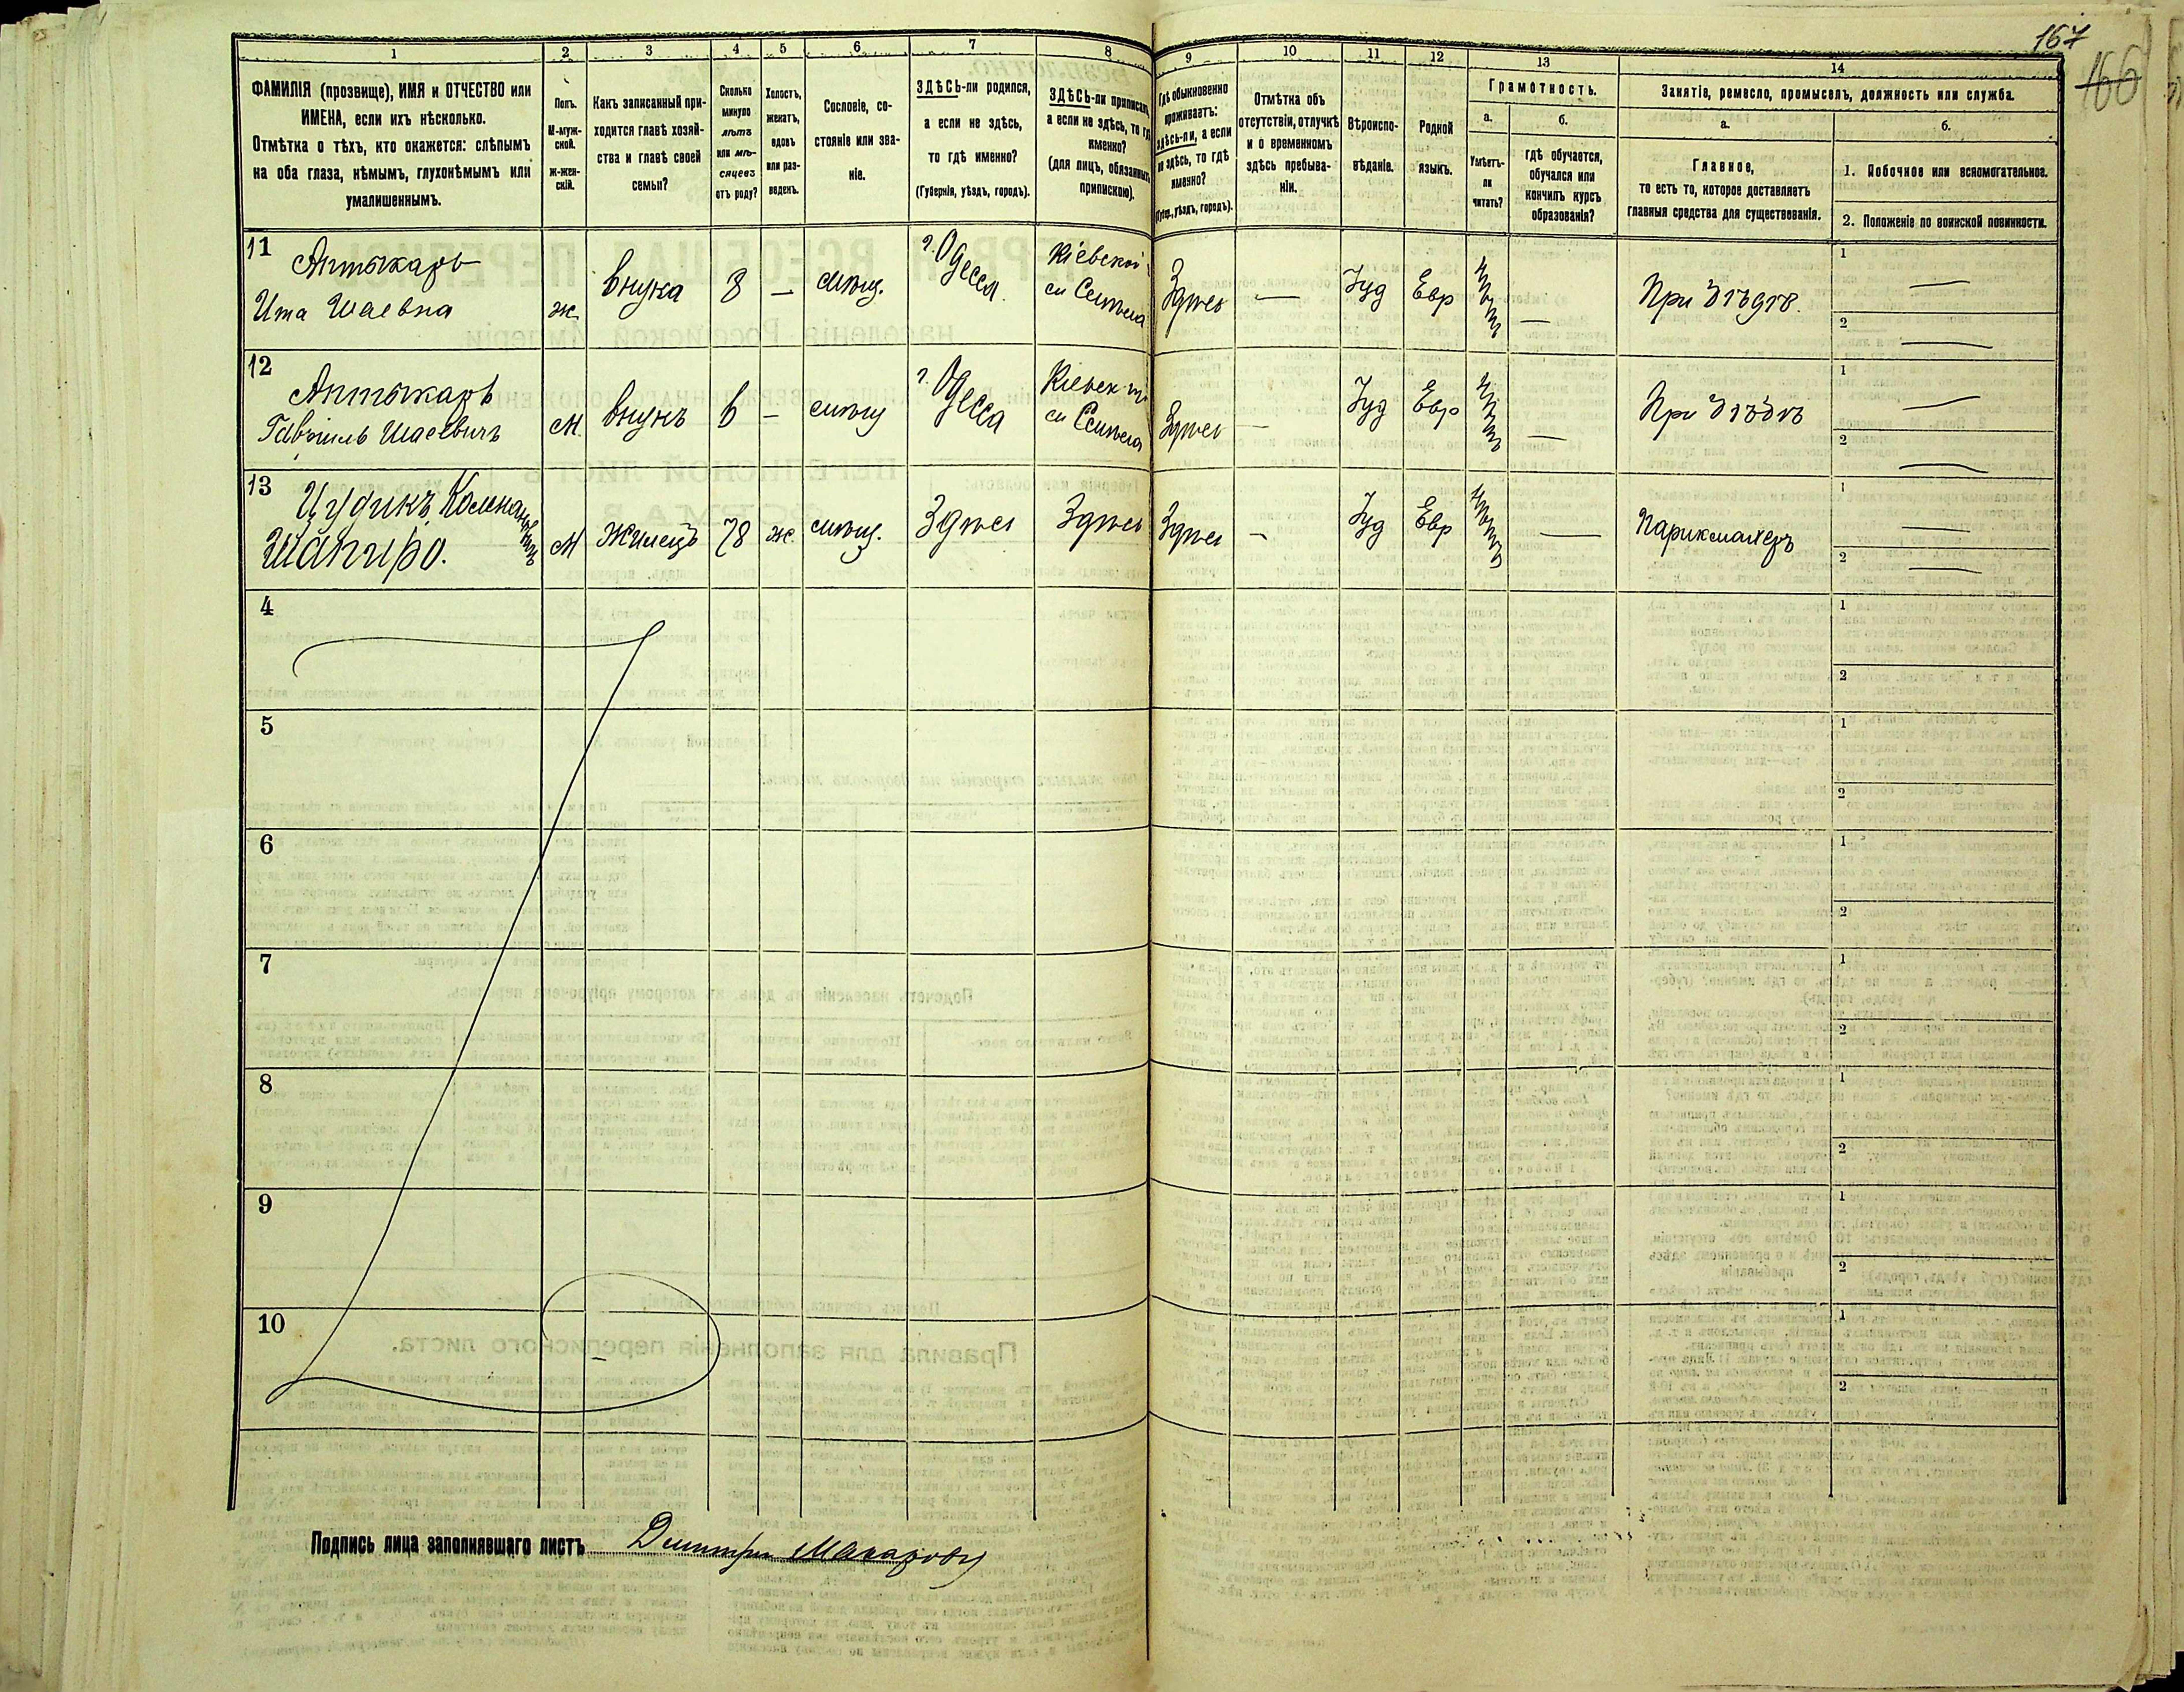 167
166
1
2
3
4
5
6
7
8
9
10
11
12
13
14
ФАМИЛІЯ (прозвище), ИМЯ и ОТЧЕСТВО или
ИМЕНА, если ихъ нѣсколько.
Отмѣтка о тѣхъ, кто окажется: слѣпымъ
на оба глаза, нѣмымъ, глухонѣмымъ или
умалишеннымъ.
Полъ.
М-муж-
ской.
Ж-жен-
скій.
Какъ записанный при-
ходится главѣ хозяй-
ства и главѣ своей
семьи?
Сколько
минуло
лѣтъ
или мѣ-
сяцевъ
отъ роду?
Холостъ,
женатъ,
вдовъ
или раз-
веденъ.
Сословіе, со-
стояніе или зва-
ніе.
ЗДѢСЬ-ли родился,
а если не здѣсь,
то гдѣ именно?
(Губернія, уѣздъ, городъ).
ЗДѢСЬ-ли приписанъ,
а если не здѣсь, то гдѣ
именно?
(для лицъ, обязанныхъ
припиской).
Гдѣ обыкновенно
проживаетъ:
здѣсь-ли, а если
не здѣсь, то гдѣ
именно?
(Губер., уѣздъ, городъ).
Отмѣтка объ
отсутствіи, отлучкѣ
и о временномъ
здѣсь пребыва-
ніи.
Вѣроиспо-
вѣданіе.
Родной
языкъ.
Грамотность.
а.
Умѣетъ-
ли
читать?
б.
гдѣ обучается,
обучался или
кончилъ курсъ
образованія?
Занятіе, ремесло, промыселъ, должность или служба.
а.
Главное,
то есть то, которое доставляетъ
главныя средства для существованія.
б.
1. Побочное или вспомогательное.
2. Положеніе по воинской повинности.
11 Аптыкарь
Ита Шаевна ж внука 8 — мѣщ. г. Одесса Кіевской Здѣсь — Іуд Евр — При дѣдѣ. 1 —
2 —
12 Аптыкарь
Гавріилъ Шаевичъ М внукъ 6 — мѣщ г. Одесса Здѣсь — Іуд Евр — При дѣдѣ 1 —
2 —
13 Цудикъ
Шапиро. М Жилецъ 78 ж. мѣщ. Здѣсь Здѣсь Здѣсь — Іуд Евр — Парикмахеръ 1 —
2 —
4 1
2
5 1
2
6 1
2
7 1
2
8 1
2
9 1
2
10 1
2
Подпись лица заполнявшаго листъ Дмитри Макаровъ